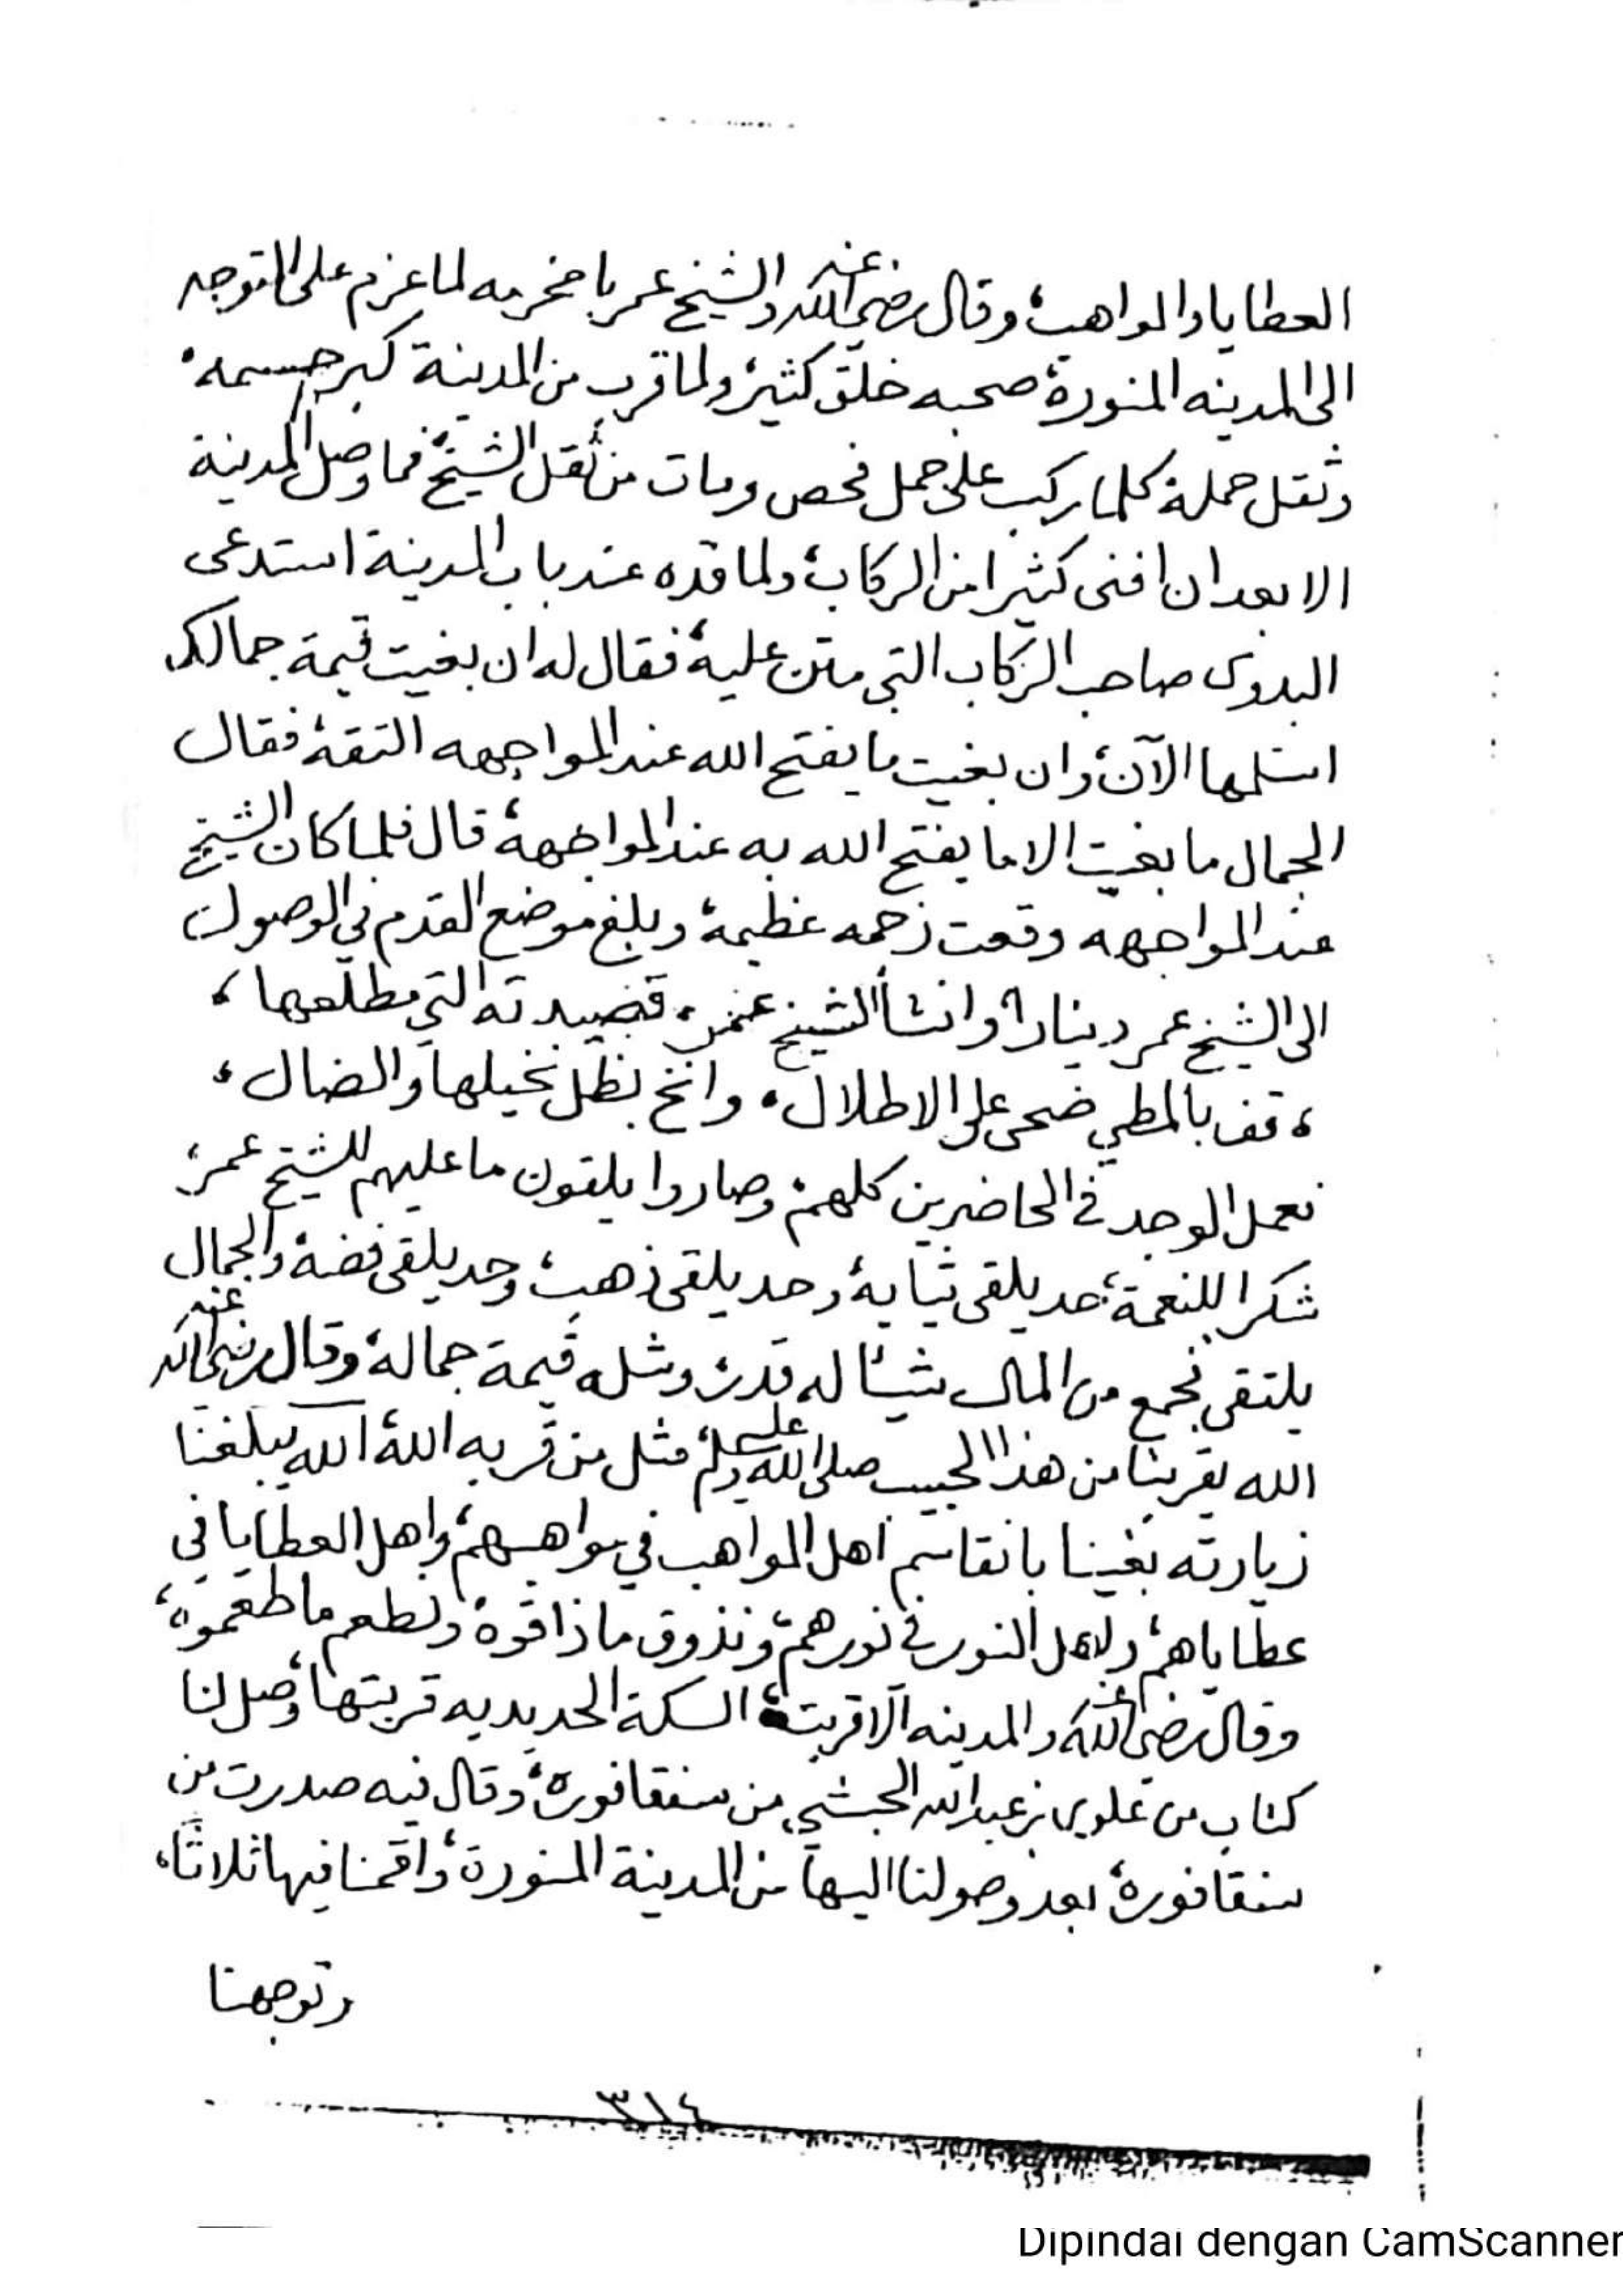 العطايا والمواهب، وقال رضي الله عنه والشيخ عمر بامخرمه لما عزم على التوجه
الى المدينه المنورة، صحبه خلق كثير، ولما قرب من المدينة كبر جسمه،
وثقل حمله، كلما ركب على جمل فحص ومات من ثقل الشيخ، فما وصل المدينة
الا بعد ان افنى كثيرا من الركاب، ولما قده عند باب المدينة استدعى
البدوى صاحب الركاب التي متن عليه، فقال له ان بغيت قيمة جمالك
استلمها الآن، وان بغيت ما يفتح الله عند المواجهه التقه، فقال
الجمال ما بغيت الا ما يفتح الله به عند المواجهة، قال فلما كان الشيخ
عند المواجهه وقعت زحمه عظيمة، وبلغ موضع القدم في الوصول
الى الشيخ عمر دينار، وانشأ الشيخ عمر، قصيدته التي مطلعها،
، قف بالمطي ضحى على الاطلال، وانخ بظل نخيلها والضال،
فعمل الوجد في الحاضرين كلهم، وصاروا يلقون ما عليهم للشيخ عمر،
شكرا للنعمة، حد يلقى ثيابه، وحد يلقى ذهب، وحد يلقى فضه، والجمال
يلتقى فجمع من المال شيئا له قدر، ومثله قيمة جماله، وقال رضي الله عنه
الله يقربنا من هذا الحبيب صلى الله عليه وسلم، مثل من قربه الله، الله يبلغنا
زيارته بغينا بانقاسم اهل المواهب في مواهبهم، واهل العطايا في
عطاياهم، ولاهل النور في نورهم، ونذوق ما ذاقوه، ونطعم ما طعموه،
وقال رضي الله عنه والمدينه الا قربت، السكة الحديديه قربتها، وصل لنا
كتاب من علوي بن عبد الله الحبشي من سنقافوره، وقال فيه صدرت من
سنقافورة، بعد وصولنا اليها من المدينة المنورة، واقمنا فيها ثلاثا،
وتوجهنا
٣١٤
Dipindai dengan CamScanner